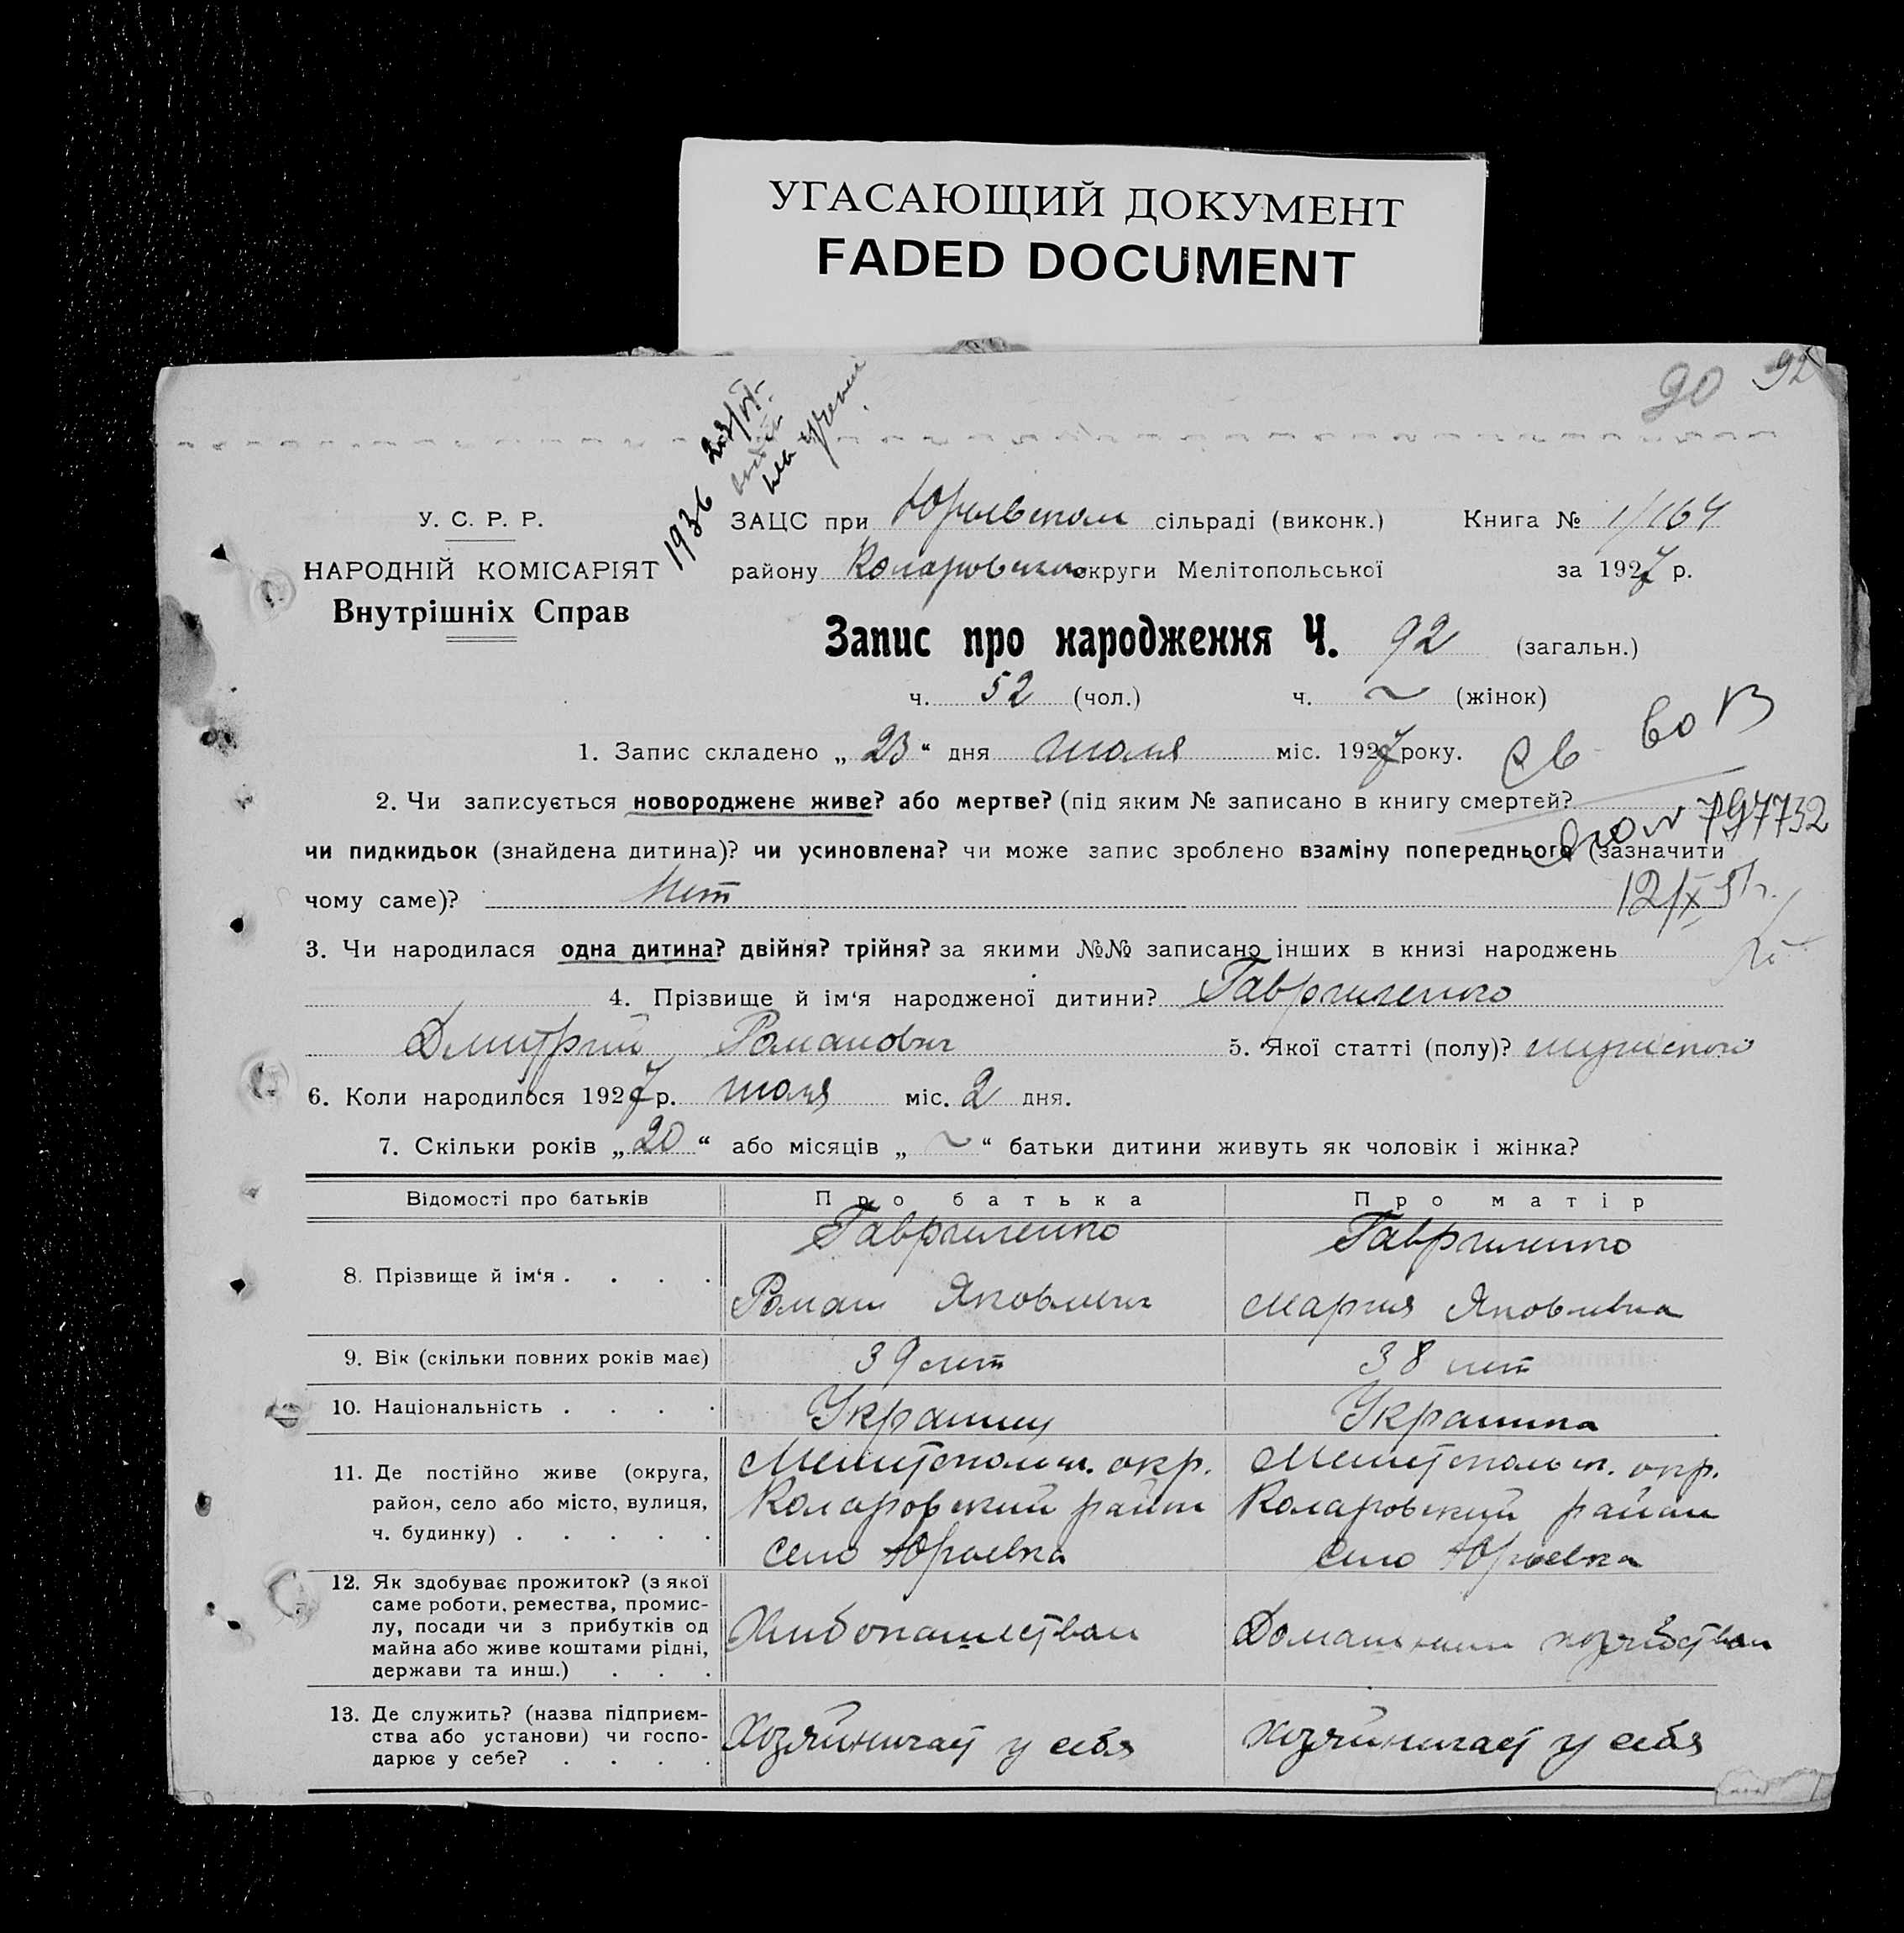 УГАСАЮЩИЙ ДОКУМЕНТ
FADED DOCUMENT
90 92
1936
У. С. Р. Р.
НАРОДНІЙ КОМІСАРІЯТ
Внутрішніх Справ
ЗАЦС при Юрьевском сільраді (виконк.) Книга № 1/164
району Коларовского округи Мелітопольської за 1927 р.
Запис про народження Ч. 92 (загальн.)
ч. 52 (чол.) ч. ~ (жінок)
1. Запис складено „ 23 “ дня июля міс. 1927 року.
2. Чи записується новороджене живе? або мертве? (під яким № записано в книгу смертей?
797732
чи пидкидьок (знайдена дитина)? чи усиновлена? чи може запис зроблено взаміну попереднього (зазначити
чому саме)? Нет
3. Чи народилася одна дитина? двійня? трійня? за якими №№ записано інших в книзі народжень
4. Прізвище й ім‘я народженої дитини? Гавриленко
Дмитрий Романович 5. Якої статті (полу)? мужского
6. Коли народилося 1927 р. июля міс. 2 дня.
7. Скільки років „ 20 “ або місяців „ ~ “ батьки дитини живуть як чоловік і жінка?
Відомості про батьків Про батька Про матір
8. Прізвище й ім‘я . . . .
Гавриленко
Роман Яковлевич
Гавриленко
Мария Яковлевна
9. Вік (скільки повних років має) 39 лет 38 лет
10. Національність . . . . Украинец Украинка
11. Де постійно живе (округа,
район, село або місто, вулиця,
ч. будинку) . . . . .
Мелитопольск. окр.
Коларовский район
село Юрьевка
Мелитопольск. окр.
Коларовский район
село Юрьевка
12. Як здобуває прожиток? (з якої
саме роботи, ремества, промис-
лу, посади чи з прибутків од
майна або живе коштами рідні,
держави та инш.) . . .
Хлебопашеством
Домашним хозяйством
13. Де служить? (назва підприєм-
ства або установи) чи госпо-
дарює у себе? . . . .
Хозяйничает у себя
Хозяйничает у себя